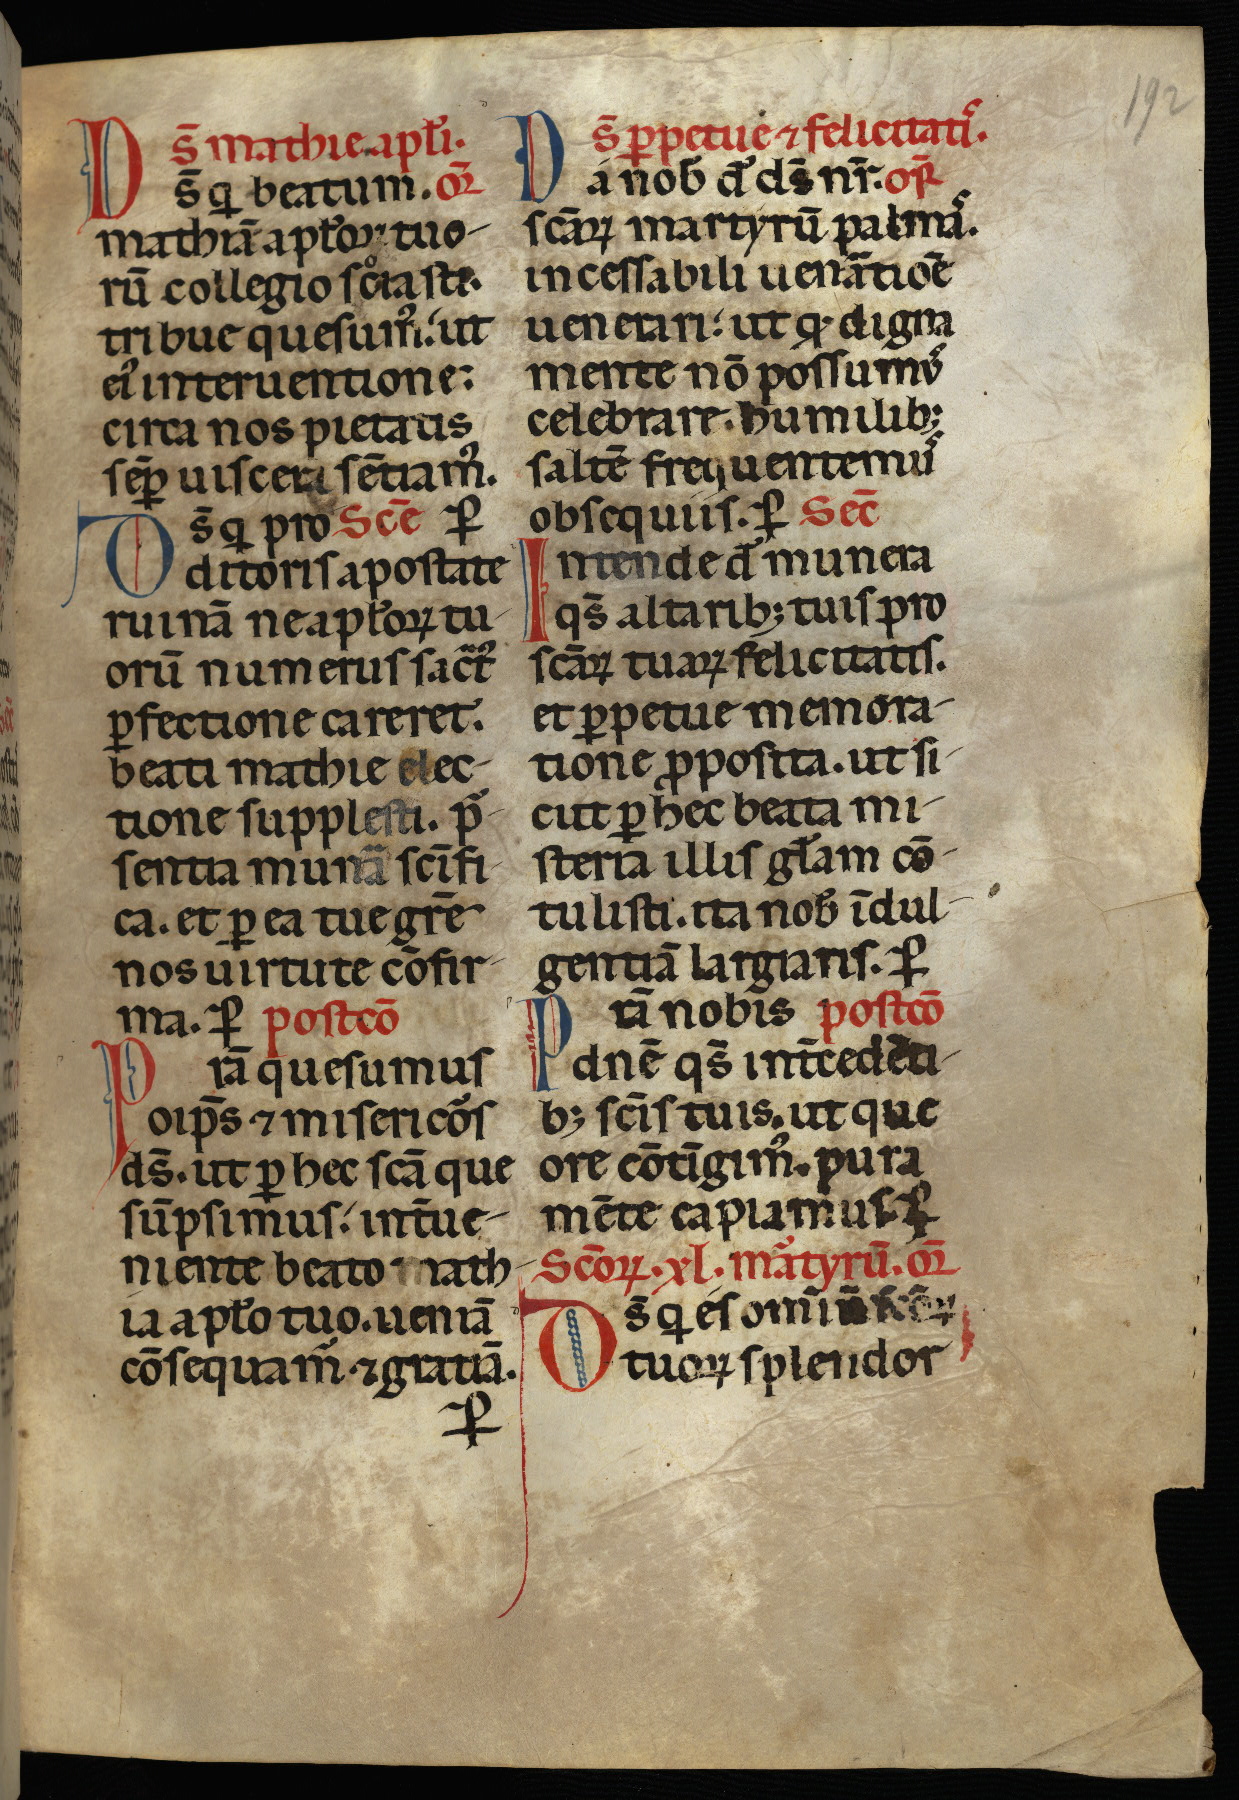 192
S̄ mathie apl̄i.
Ds̄ qͥ beatum. or̄
mathiā apl̄oꝝ tuo-
rū collegio sociasti.
tribue quesumꝰ. ut
eiꝰ interuentione:
circa nos pietatis
sēꝑ uiscera sētiamꝰ.
Ds̄ qͥ pro Scē ꝑ
ditoris apostate
ruinā ne apl̄oꝝ tu-
orū numerus sac̄tꝰ
ꝑfectione careret.
beati mathie elec-
tione supplesti. p̄-
sentia munā sc̄ifi-
ca. et ꝑ ea tue gr̄e
nos uirtute cōfir-
ma. ꝑ postcō
Pr̄a quesumus
oip̄s ⁊ misericōs
ds̄. ut ꝑ hec sc̄a que
sūpsimus. int̄ue-
niente beato math-
ia apl̄o tuo. ueniā
cōsequamᷣ ⁊ gratiā.
ꝑ
S̄ ꝑpetue ⁊ felicitatꝭ.
Da nob̄ q̄s dn̄s nr̄. or̄
sc̄aꝝ martyrū palmaꝭ.
incessabili uen̄atiōe
uenerari. ut qͣ digna
mente nō possumꝰ
celebrare. humilibꝫ
saltē frequentemꝰ
obsequiis. ꝑ Sec̄
Intende q̄s munera
qs̄ altaribꝫ tuis pro
sc̄aꝝ tuaꝝ felicitatis.
et ꝑpetue memora-
tione ꝓposita. ut si-
cut ꝑ hec beata mi-
steria illis gl̄am cō-
tulisti. ita nob̄ īdul-
gentiā largiaris. ꝑ
Pr̄a nobis postcō
dn̄e qs̄ int̄cedēti-
bꝫ sc̄is tuis. ut que
ore cōtīgimꝰ. pura
mēte capiamus. ꝑ
Sc̄oꝝ. xl. mātyrū. or̄
Ds̄ qͥ es omniū sc̄oꝝ
tuoꝝ splendor